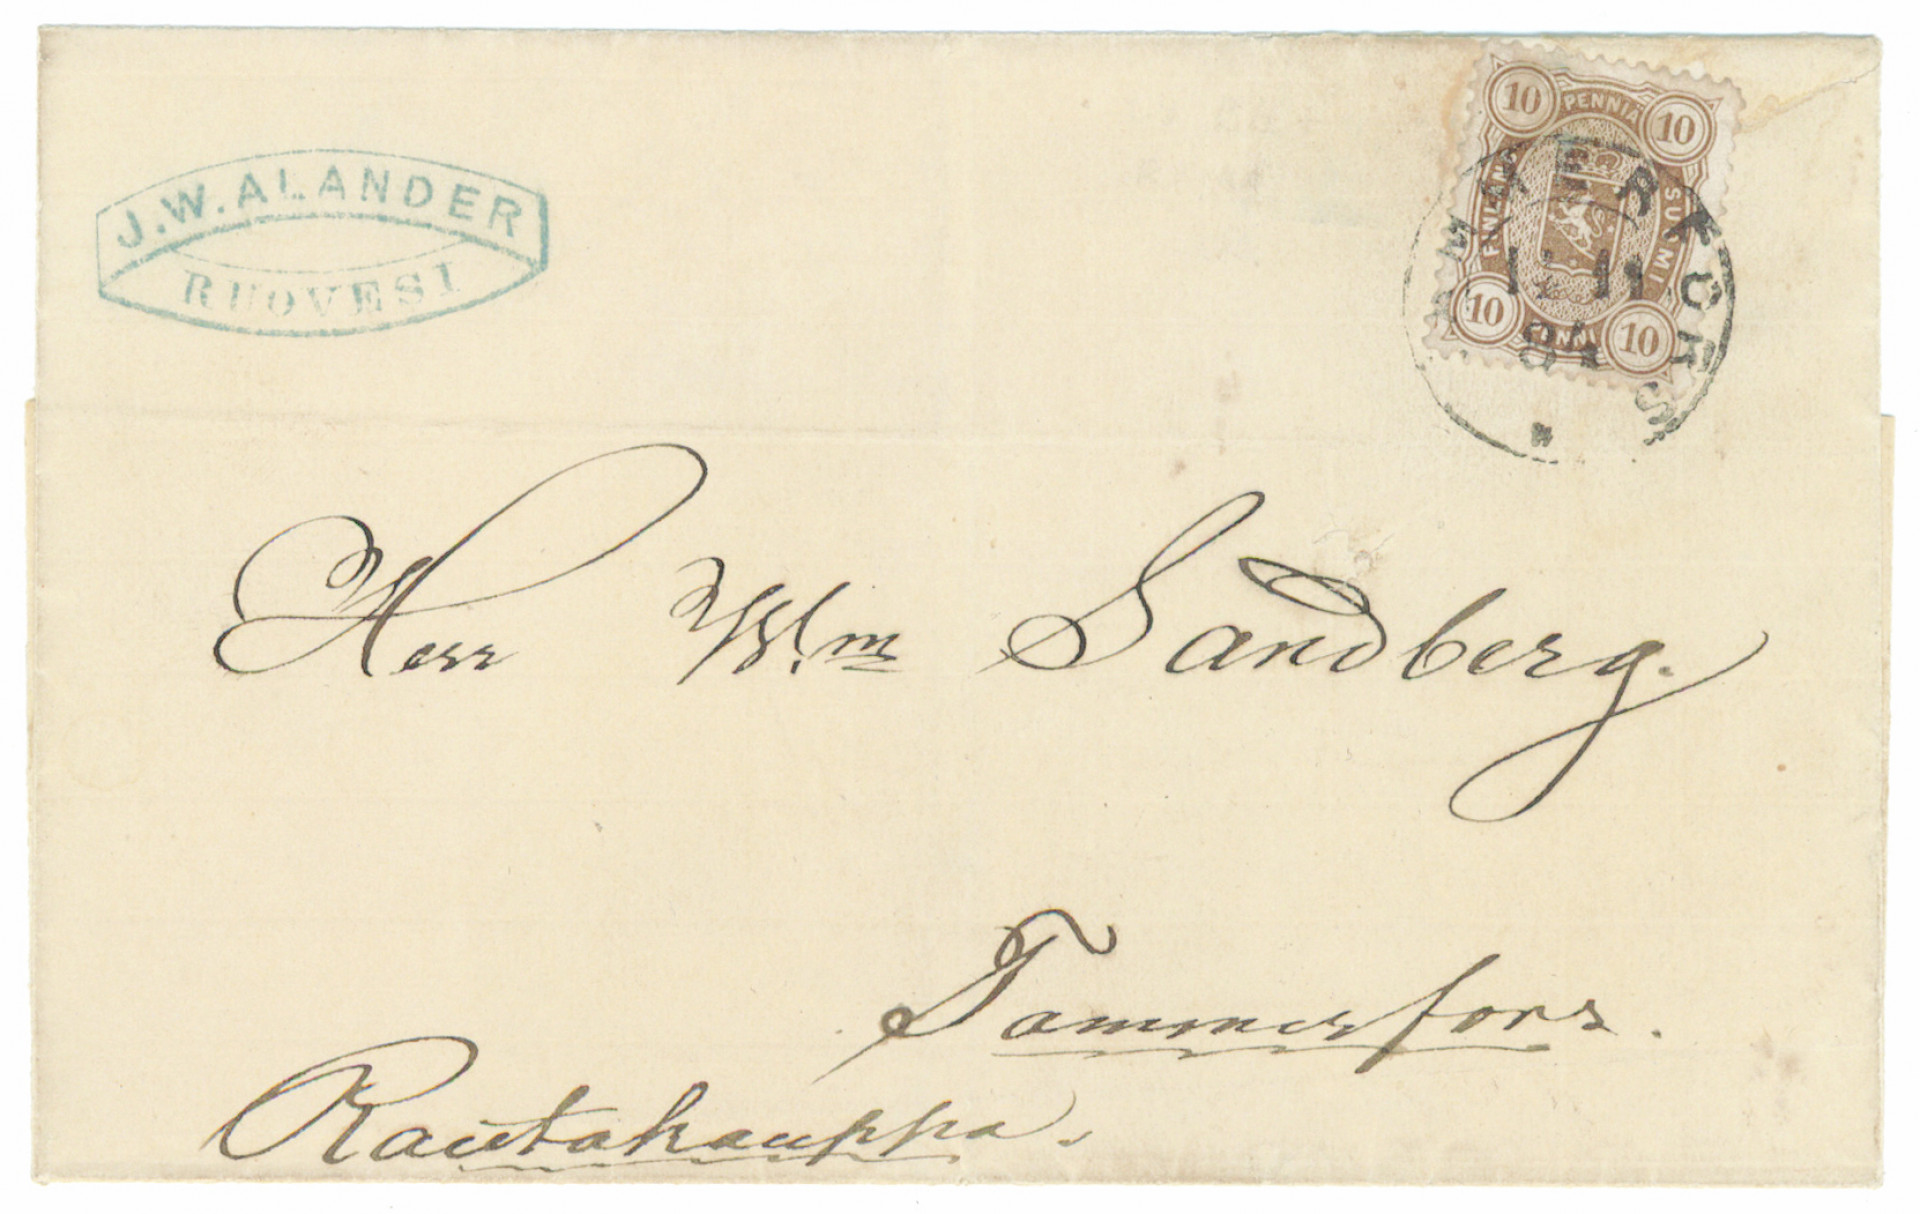 J.W.ALANDER
RUOVESI
10 PENNIÄ 10
FINLAND SUOMI
10 10
11
84
Herr Wlm Sandberg.
Tammerfors.
Rautakauppa.